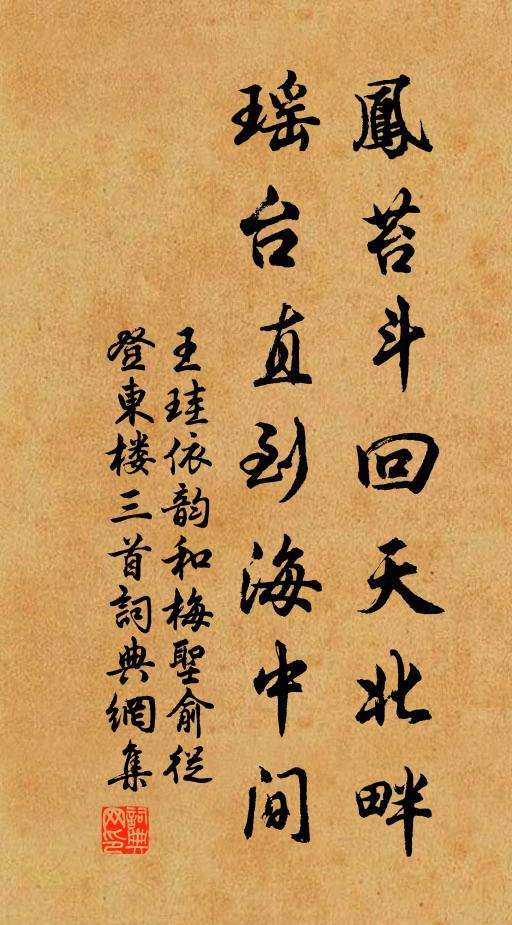 鳳苔斗回天北畔
瑶台直到海中间
王珪依韵和梅聖俞從
登東楼三首詞典網集
詞典网印